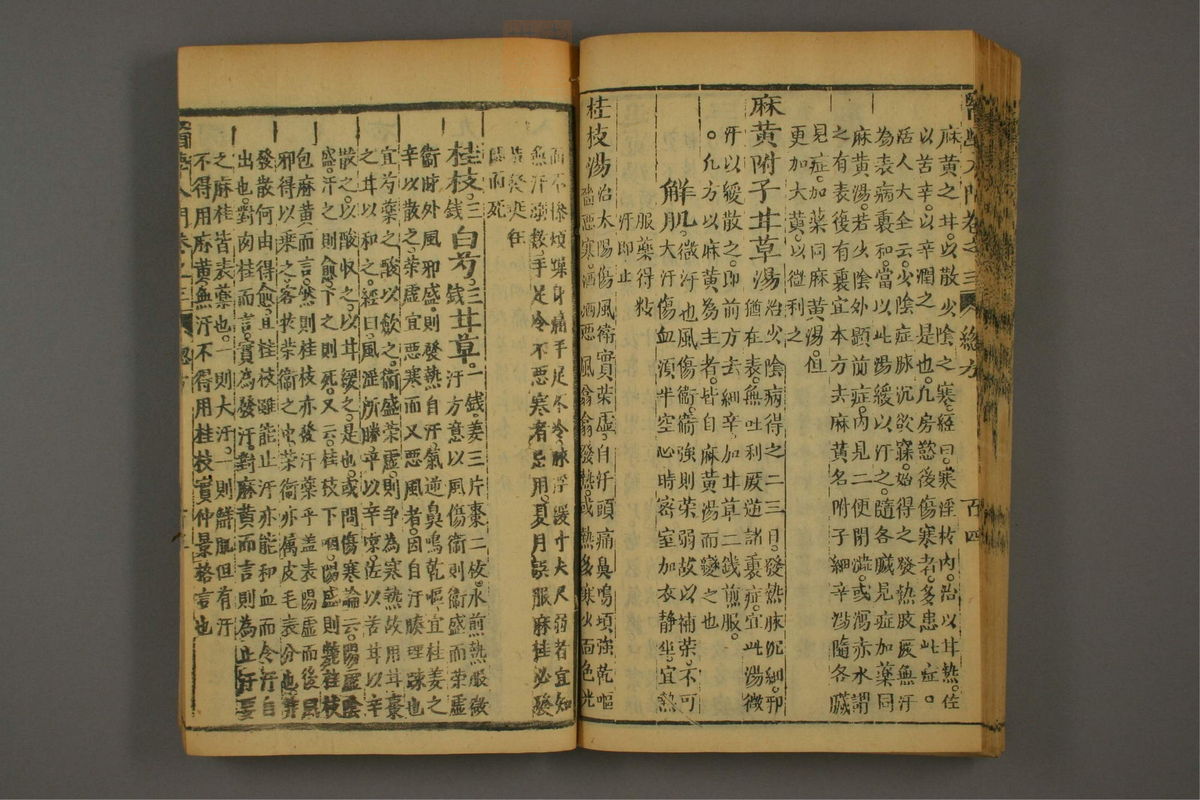 醫學入門卷之三 總方 百四
麻黄之甘以散少陰之寒。經曰寒淫於内。治以甘熱。佐
以苦辛。以辛潤之是也。凡房慾後傷寒者。多患此症。
活人大全云。少陰症脉沉欲寐。始得之發熱肢厥無汗
為表病裏和。當以此湯緩以汗之。隨各臟見症加藥同
麻黄湯。若少陰外顯前症。内見二便閉澁。或瀉赤水謂
之有表復有裏宜本方去麻黄名附子細辛湯隨各臟
見症。加藥同麻黄湯。但
更加大黄。以微利之
麻黄附子甘草湯 治少陰病得之二三日。發熱脉沉細。邪
猶在表。無吐利厥逆諸裏症。宜此湯微
汗以緩散之。即前方去細辛。加甘草二錢煎服。
。凡方以麻黄為主者。皆自麻黄湯而變之也
解肌。微汗也風傷衛。衛強則荣弱故以補荣。不可
大汗傷血須半空心時密室加衣靜坐。宜熱
服藥得粘
汗即止
桂枝湯 治太陽傷風衛實荣虚。自汗頭痛鼻鳴項強乾嘔
嗇嗇惡寒。洒洒惡風翕翕發熱。或熱多寒少面色光
而不慘煩躁身痛手足不冷脉浮緩寸大尺弱者宜如
無汗數。手足冷不惡寒者。忌用。夏月誤服麻桂必發
黄發斑狂
而死
桂枝。三錢 白芍。三錢 甘草。一錢。姜三片棗二枚。水煎熱服微
汗方意以風傷衛則衛盛而荣虚
衛既外風邪盛。則發熱自汗。氣逆鼻鳴乾嘔。宜桂姜之
辛以散之。荣虚宜惡寒而又惡風者。因自汗腠理踈也
宜芍藥之酸以斂之。衛盛荣虚則争為寒熱故用甘棗
之甘以和之。經曰。風淫所勝平以辛凉。佐以苦甘以辛
散之。以酸收之。以甘緩之。是也。或問傷寒論云。陽虚陰
盛。汗之則愈下之則死。又云。桂枝下咽。陽盛則斃。桂枝
包麻黄而言。然則桂枝亦發汗藥乎盖表陽虚而後風
邪得以乘之。客於榮衛之中。荣衛亦属皮毛表分也。非
發散何由得愈。且桂枝雖能止汗亦能和血而令汗自
出也。對肉桂而言。實為發汗。對麻黄而言則為止汗要
之麻桂皆表藥也。一則大汗。一則觧肌但有汗
不得用麻黄無汗不得用桂枝實仲景格言也
醫學入門卷之三